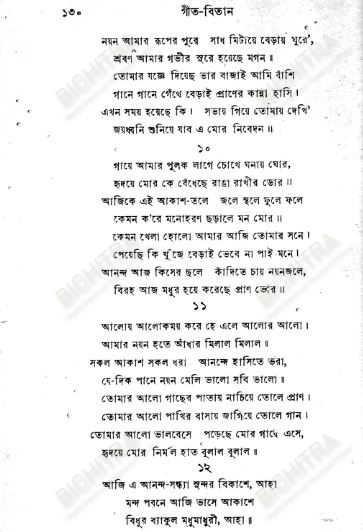 ১৩০ গীত-বিতান
নয়ন আমার রূপের পুরে সাধ মিটায়ে বেড়ায় ঘুরে’,
শ্রবণ আমার গভীর সুরে হয়েছে মগন॥
তোমার যজ্ঞে দিয়েছ ভার বাজাই আমি বাঁশি
গানে গানে গেঁথে বেড়াই প্রাণের কান্না হাসি।
এখন সময় হয়েছে কি। সভায় গিয়ে তোমায় দেখি’
জয়ধ্বনি শুনিয়ে যাব এ মোর নিবেদন॥
১০
গায়ে আমার পুলক লাগে চোখে ঘনায় ঘোর,
হৃদয়ে মোর কে বেঁধেছে রাঙা রাখীর ডোর॥
আজিকে এই আকাশ-তলে জলে স্থলে ফুলে ফলে
কেমন ক’রে মনোহরণ ছড়ালে মন মোর॥
কেমন খেলা হোলো আমার আজি তোমার সনে।
পেয়েছি কি খুঁজে বেড়াই ভেবে না পাই মনে।
আনন্দ আজ কিসের ছলে কাঁদিতে চায় নয়নজলে,
বিরহ আজ মধুর হয়ে করেছে প্রাণ ভোর॥
১১
আলোয় আলোকময় করে হে এলে আলোর আলো।
আমার নয়ন হতে আঁধার মিলাল মিলাল॥
সকল আকাশ সকল ধরা আনন্দে হাসিতে ভরা,
যে-দিক পানে নয়ন মেলি ভালো সবি ভালো॥
তোমার আলো গাছের পাতায় নাচিয়ে তোলে প্রাণ।
তোমার আলো পাখির বাসায় জাগিয়ে তোলে গান।
তোমার আলো ভালবেসে পড়েছে মোর গায়ে এসে,
হৃদয়ে মোর নির্মল হাত বুলাল বুলাল॥
১২
আজি এ আনন্দ-সন্ধ্যা সুন্দর বিকাশে, আহা
মন্দ পবনে আজি ভাসে আকাশে
বিধুর ব্যাকুল মধুমাধুরী, আহা॥
BICHITRA
BICHITRA
BICHITRA
BICHITRA